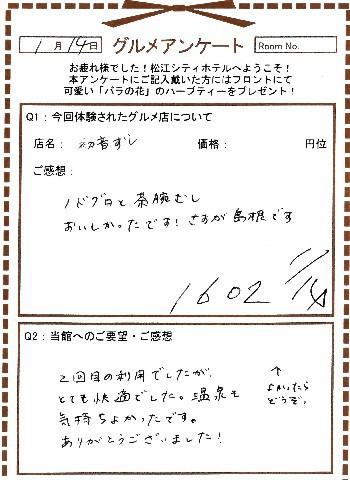 1月14日 グルメアンケート Room No.
お疲れ様でした！松江シティホテルへようこそ！
本アンケートにご記入戴いた方にはフロントにて
可愛い「バラの花」のハーブティーをプレゼント！
Q1：今回体験されたグルメ店について
店名： 初音ずし 価格： 円位
ご感想：
ノドグロと茶腕むし
おいしかったです！さすが島根です
1602 1/14
Q2：当館へのご要望・ご感想
2回目の利用でしたが、
とても快適でした。温泉も
気持ちよかったです。
ありがとうございました！
↑
よかったら
どうぞ。